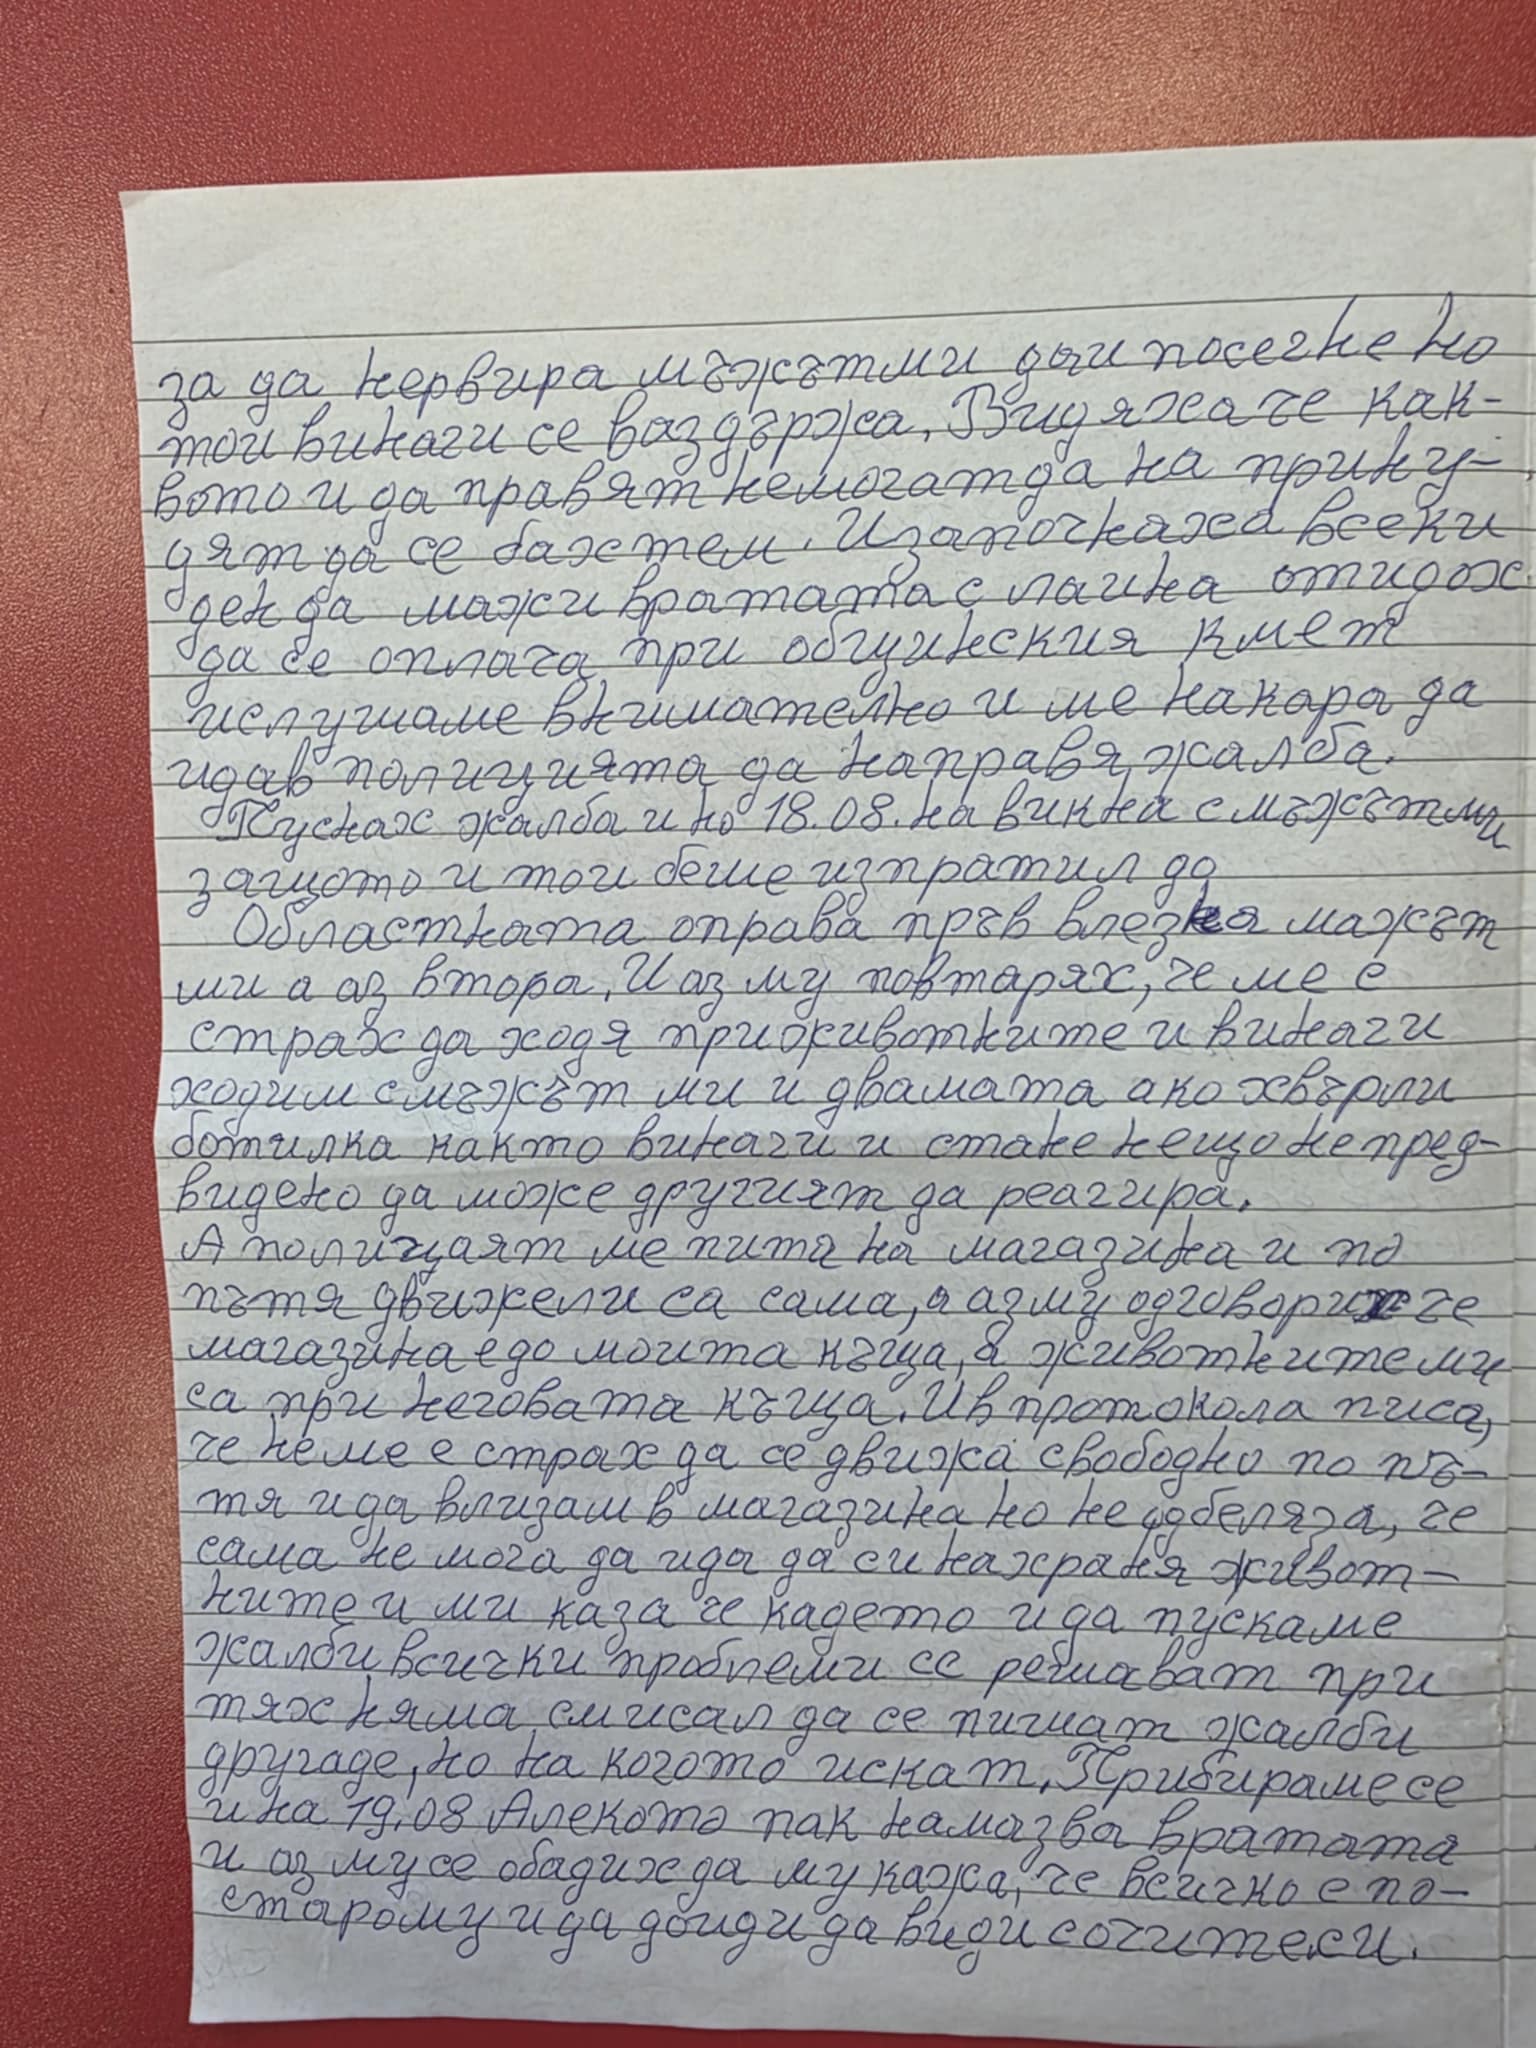 за да нервира мъжътми дыи посегне но
тои винаги се ваздържа, Видяха че как-
вото и да правят немогат да на прину-
дят да се бахтем. Изапочнаха всеки
ден да мажи вратата с лаина отидох
да се оплача при общинския кмет
ислушаме внимателно и ме накара да
идав полицията да направя жалба.
Пуснах жалба и но 18.08. на викна с мъжътми
защото и тои беше изпратил до
Областната оправа пръв влезна мажът
ми а аз втора, И аз му повтарях, че ме е
страх да ходя при животните и винаги
ходим с мъжът ми и двамата ако хвърли
ботилка както винаги и стане нещо непред-
видено да може другият да реагира.
А полицаят ме пита на магазина и по
пътя движели са сама, а азму одговорих че
магазина е до моита къща, а животнитеми
са при неговата къща. И в протокола писа,
че неме е страх да се движа свободно по пъ-
тя и да влизам в магазина но не одбеляза, че
сама не мога да ида да си нахраня живот-
ните и ми каза че кадето и да пускаме
жалби всички проблеми се решават при
тях няма смисал да се пишат жалби
другаде, но на когото искат. Прибираме се
и на 19.08 Алекото пак намазва вратата
и аз му се обадих да му кажа, че всичко е по-
старому и да доиди да види сочите си.